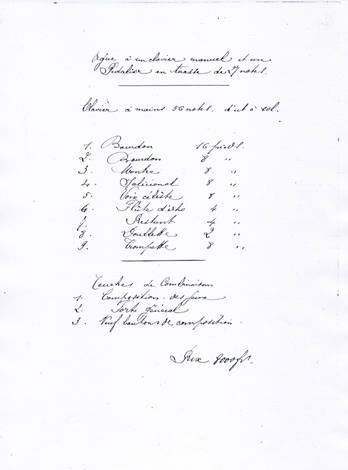 Orgue à un clavier manuel et un
Pédalier en tirasse de 27 notes.
Clavier à mains 56 notes. d'ut à sol.
1. Bourdon 16 pieds.
2. Bourdon 8 "
3. Montre 8 "
4. Salicional 8 "
5. Voix céleste 8 "
6. Flûte d'écho 4 "
7. Prestant 4 "
8. Doublette 2 "
9. Trompette 8 "
Touches de Combinaison
1. Composition des jeux
2. Forte général
3. Neuf boutons de composition.
Prix 9000 frs.